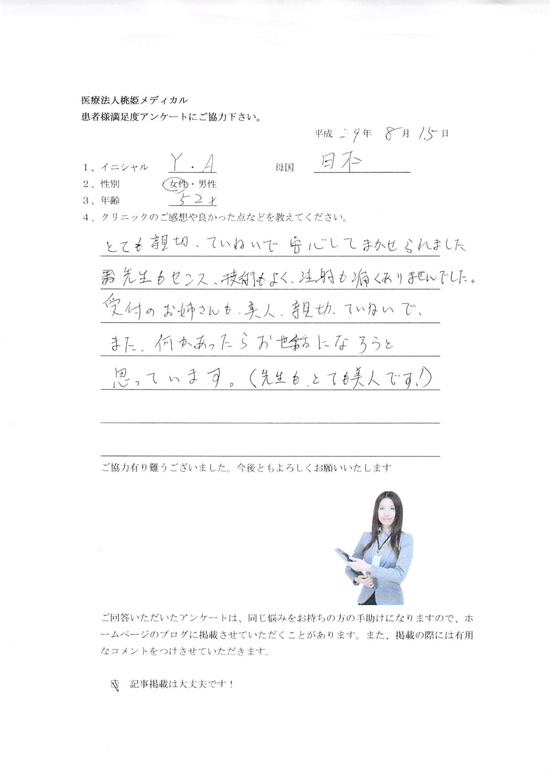 医療法人桃姫メディカル
患者様満足度アンケートにご協力下さい。
平成 29年 8月 15日
1、イニシャル Y.A 母国 日本
2、性別 女性・男性
3、年齢 52才
4、クリニックのご感想や良かった点などを教えてください。
とても親切、ていねいで安心してまかせられました
先生もセンス、技術もよく、注射も痛くありませんでした。
受付のお姉さんも、美人、親切、ていねいで、
また、何かあったらお世話になろうと
思っています。(先生も、とても美人です!)
ご協力有り難うございました。今後ともよろしくお願いいたします
ご回答いただいたアンケートは、同じ悩みをお持ちの方の手助けになりますので、ホ
ームページのブログに掲載させていただくことがあります。また、掲載の際には有用
なコメントをつけさせていただきます。
☑ 記事掲載は大丈夫です!